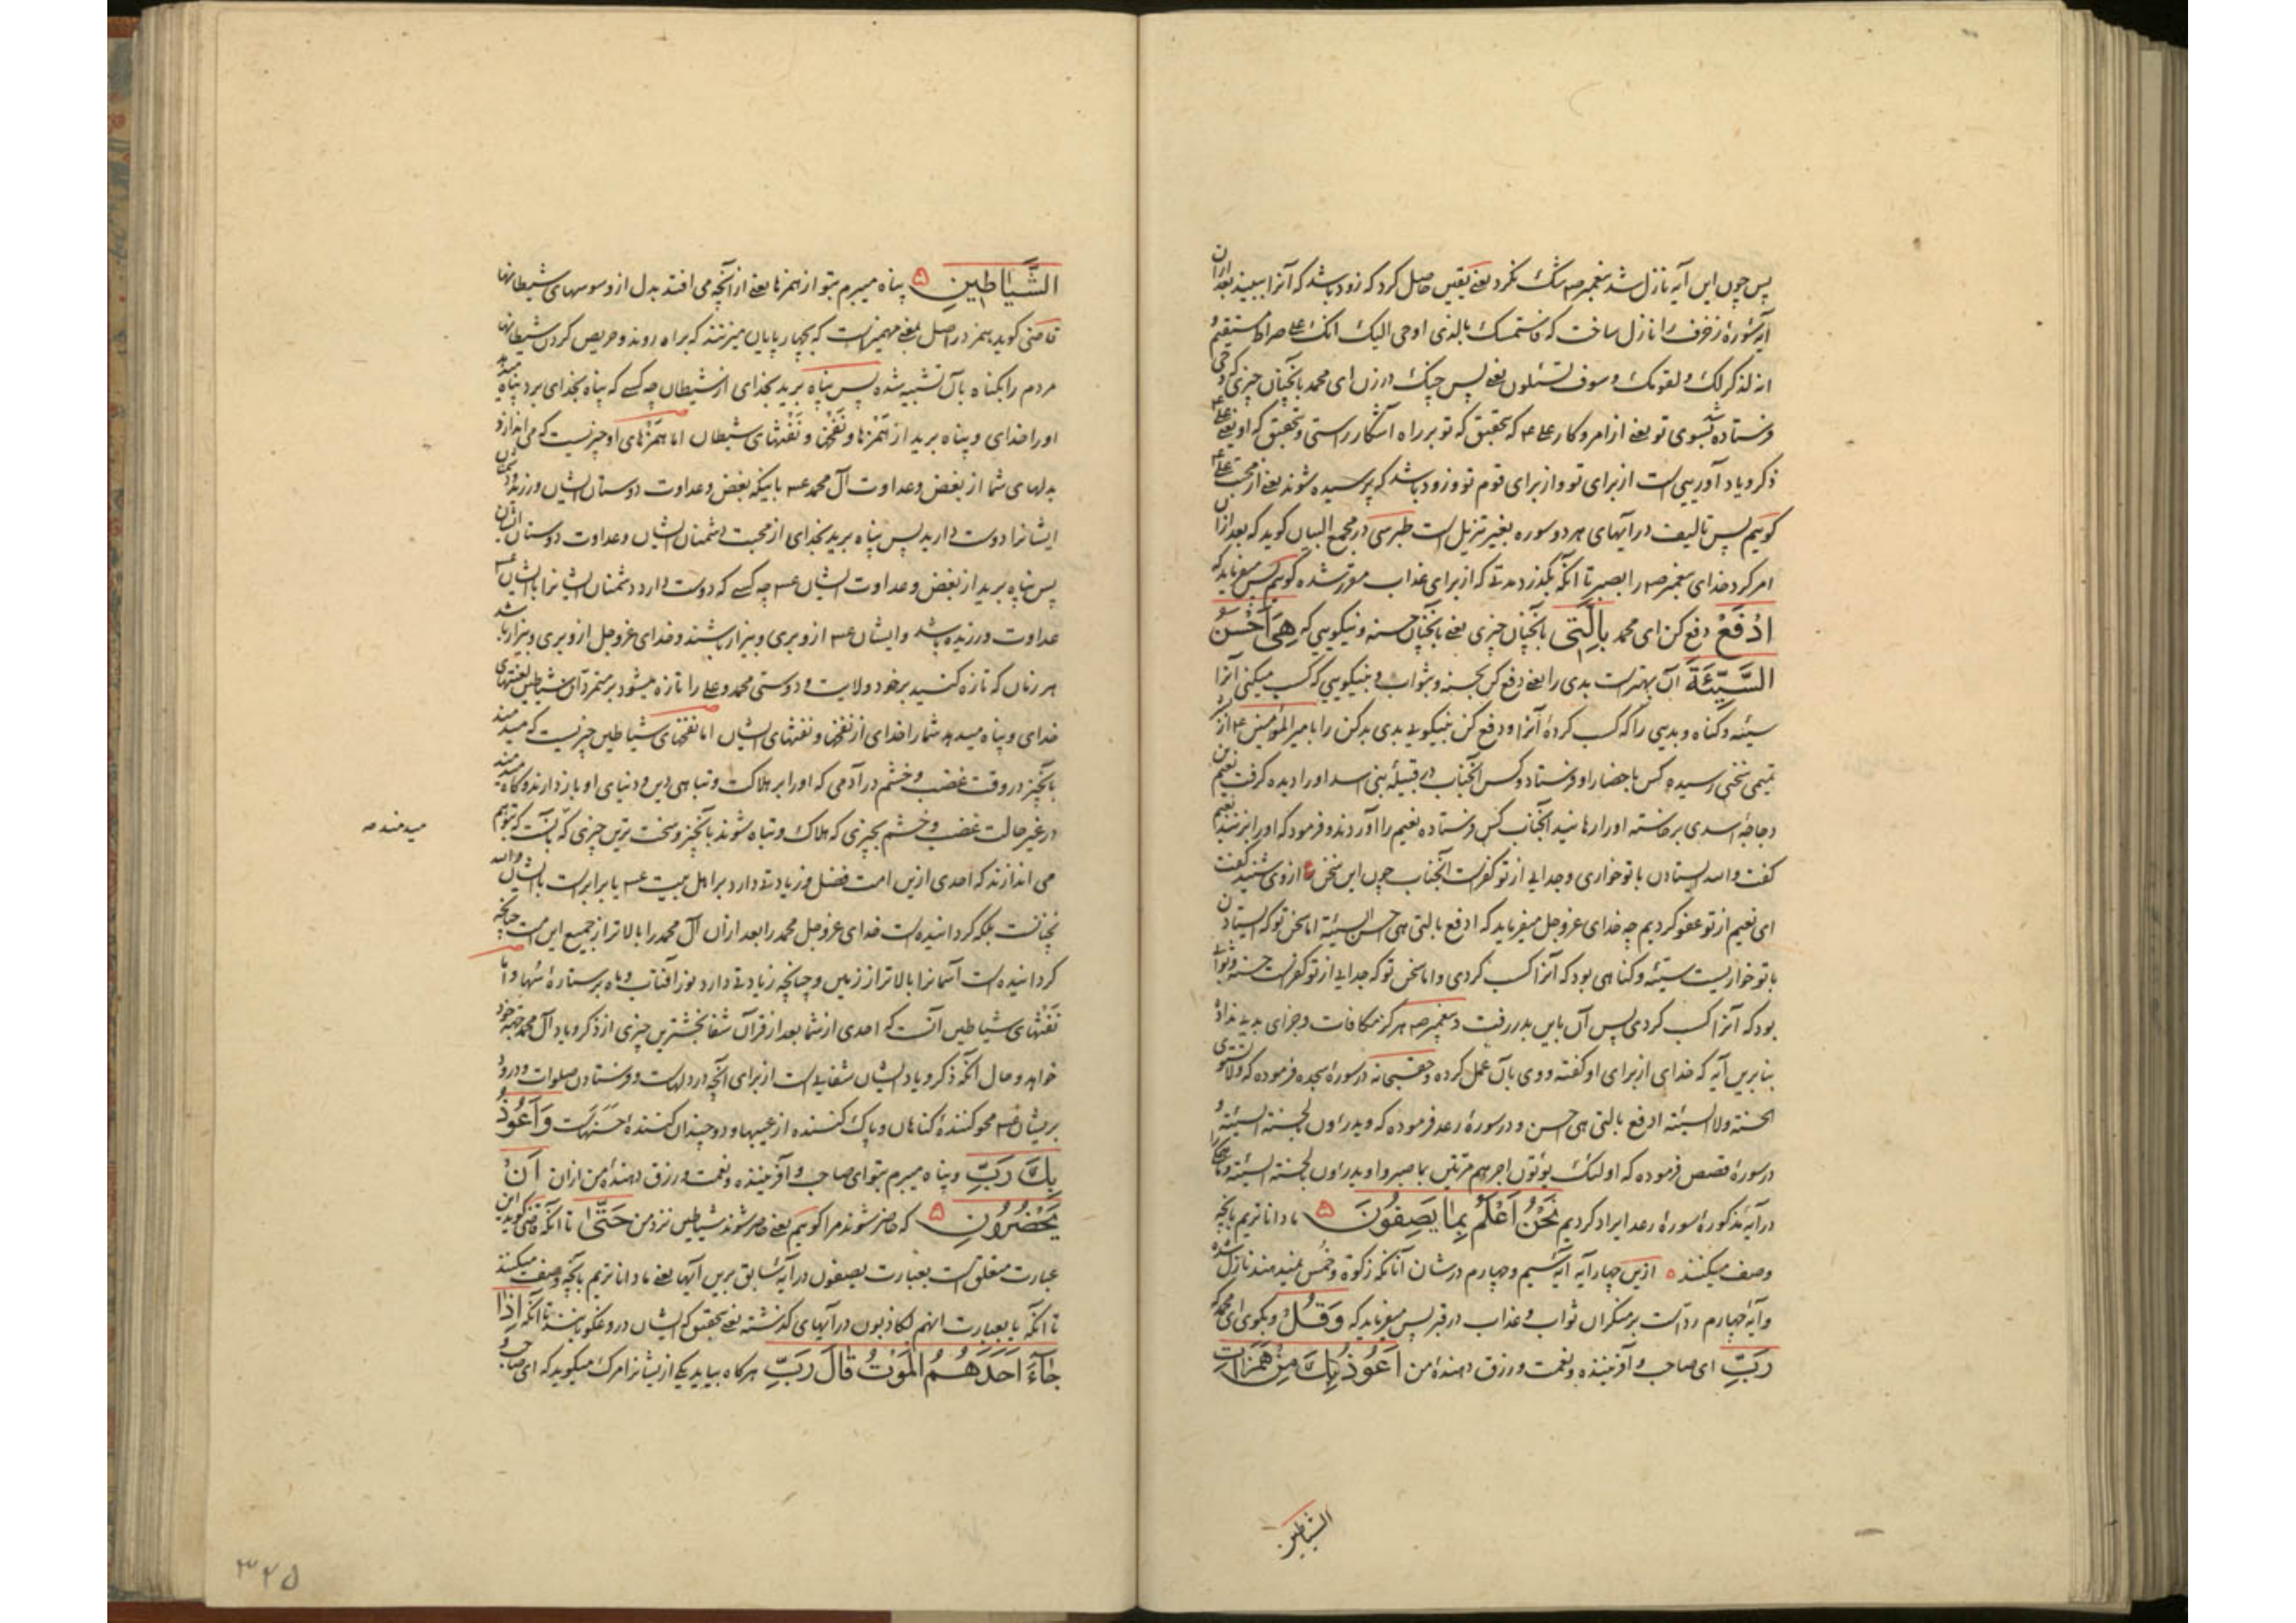 پس چون این آیه نازل شد پیغمبر صه شک نکرد یعنی یقین حاصل کرد که زود باشد که آنرا ببیند بعد ازان
آیه سورهٔ زخرف را نازل ساخت که فاستمسک بالذی اوحی الیک انک علی صراط مستقیم و
انه لذکر لک و لقومک و سوف تسئلون یعنی پس چنگ در زن ای محمد بآنچنان چیزی که وحی
فرستاده شد بسوی تو یعنی از امر و کار علی ع که بتحقیق که تو بر راه آشکار راستی و بتحقیق که او یعنی علی ع
ذکر و یاد آوریی است از برای تو و از برای قوم تو و زود باشد که پرسیده شوند یعنی از محبت علی ع
گوییم پس تالیف در آیهای هر دو سوره بغیر تنزیل است طبرسی در مجمع البیان گوید که بعد ازان
امر کرد خدای پیغمبر صه را بصبر تا آنکه بگذرد مدتی که از برای عذاب مقرر شده گوییم پس میفرماید که
اِدْفَعْ دفع کن ای محمد بِالَّتی بآنچنان چیزی یعنی بآنچنان حسنه و نیکویی که هِیَ اَحْسَنُ
السَّیِّئَةَ آن بهتر است بدی را یعنی دفع کن بحسنه و بثواب و بنیکویی که کسب میکنی آنرا
سیئه و گناه و بدیی را که کسب کردهٔ آنرا و دفع کن بنیکویی بدی بد کن را بامیر المؤمنین ع از
تمیمی سخنی رسیده کس باحضار او فرستاد و کس آنجناب در قبیلهٔ بنی اسد او را دیده گرفت نعیم بن
دجاجهٔ اسدی برخاسته او را رهانید آنجناب کس فرستاده نعیم را آوردند و فرمود که او را بزنید نعیم
گفت والله ایستادن با تو خواری و جدایی از تو کفر است آنجناب چون این سخن ازوی شنید گفت
ای نعیم از تو عفو کردیم چه خدای عزوجل میفرماید که ادفع بالتی هی احسن السیئة اما سخن تو که ایستادن
با تو خواریست سیئه و گناهی بود که آنرا کسب کردی و اما سخن تو که جدایی از تو کفر است حسنه و ثوابی
بود که آنرا کسب کردی پس آن باین بدر رفت و پیغمبر صه هرگز مکافات و جزای بدی بداده
بنا برین آیه که خدای از برای او گفته و وی بآن عمل کرده و حقسبحانه در سورهٔ سجده فرموده که ولا تستوی
الحسنة ولا السیئة ادفع بالتی هی احسن و در سورهٔ رعد فرموده که ویدرؤن بالحسنة السیئة و
در سورهٔ قصص فرموده که اولئک یؤتون اجرهم مرتین بما صبروا ویدرؤن بالحسنة السیئة و ما
در آیهٔ مذکورهٔ سورهٔ رعد ایراد کردیم نَحْنُ اَعْلَمُ بِما یَصِفُونَ ۵ ما داناتریم بآنچه
وصف میکنند ۵ ازین چهار آیه آیه سیم و چهارم در شان آنانکه زکوة و خمس نمیدهند نازل شده
و آیهٔ چهارم رد است بر منکران ثواب و عذاب در قبر پس میفرماید که وَ قُلْ و بگوی ای محمد که
رَبِّ ای صاحب و آفریننده و نعمت و رزق دهندهٔ من اَعُوذُ بِکَ مِنْ هَمَزاتِ
الشیاطین
الشَّیاطینِ ۵ پناه میبرم بتو از همزها یعنی از آنچه می افتد بدل از وسوسهای شیطانها
قاضی گوید همز در اصل بمعنی مهمیز است که بچهارپایان میزنند که براه روند و حریص کردن شیطانها
مردم را بگناه بآن تشبیه شده پس پناه برید بخدای از شیطان چه کسی که پناه بخدای برد پناه میدهد
او را خدای و پناه برید از همزها و نفخها و نفثهای شیطان اما همزهای او چیزیست که می اندازد
بدلهای شما از بغض و عداوت آل محمد عـ باینکه بغض و عداوت دوستان ایشان ورزند و دشمنان
ایشانرا دوست دارید پس پناه برید بخدای از محبت دشمنان ایشان و عداوت دوستان ایشان
پس پناه برید از بغض و عداوت ایشان عـ چه کسی که دوست دارد دشمنان ایشانرا با ایشان عـ
عداوت ورزیده باشد و ایشان عـ ازو بری و بیزار باشند و خدای عزوجل ازو بری و بیزار باشد
هر زمان که تازه کنید بر خود ولایت و دوستی محمد و علی را تازه میشود بر متمردان شیاطین لعنتهای
خدای و پناه میدهد شما را خدای از نفخها و نفثهای ایشان اما نفخهای شیاطین چیزیست که میدمند
بآنچیز در وقت غضب و خشم در آدمی که او را بر هلاکت و تباهی دین و دنیای او باز دارند و گاه میدمند
در غیر حالت غضب و خشم بچیزی که هلاک و تباه شوند بآنچیز و سخت ترین چیزی که آنست که بتوهم
میدمند صه
می اندازند که احدی ازین امت فضل و زیادتی دارد بر اهل بیت عـ یا برابر است با ایشان والله
نچنانست بلکه گردانیده است خدای عزوجل محمد را بعد ازان آل محمد را بالاتر از جمیع این امت چنانچه
گردانیده است آسمانرا بالاتر از زمین و چنانچه زیادتی دارد نور آفتاب و ماه بر ستارهٔ سُها و اما
نفثهای شیاطین آنست که احدی از شما بعد از قرآن شفابخشترین چیزی از ذکر و یاد آل محمد جهة خود
خواهد و حال آنکه ذکر و یاد ایشان شفایی است از برای آنچه در دلهاست و فرستادن صلوات و درود
بر ایشان عـ محو کنندهٔ گناهان و پاک کننده از عیبها و دو چندان کنندهٔ حَسَنَهاست وَ اَعُوذُ
بِکَ رَبِّ و پناه میبرم بتو ای صاحب و آفریننده و نعمت و رزق دهندهٔ من ازان اَنْ
یَحْضُرُونِ ۵ که حاضر شوند مرا گوییم یعنی حاضر شوند شیاطین نزد من حَتّی تا آنکه قاضی گوید این
عبارت متعلق است بعبارت یصفون در آیه سابق برین آیها یعنی ما داناتریم بآنچه وصف میکنند
تا آنکه یا بعبارت انهم لکاذبون در آیهای گذشته یعنی بتحقیق که ایشان دروغگویانند تا آنکه اِذا
جاءَ اَحَدَهُمُ الْمَوْتُ قالَ رَبِّ هرگاه بیاید یکی از ایشانرا مرگ میگوید که ای صاحب و
۳۲۵